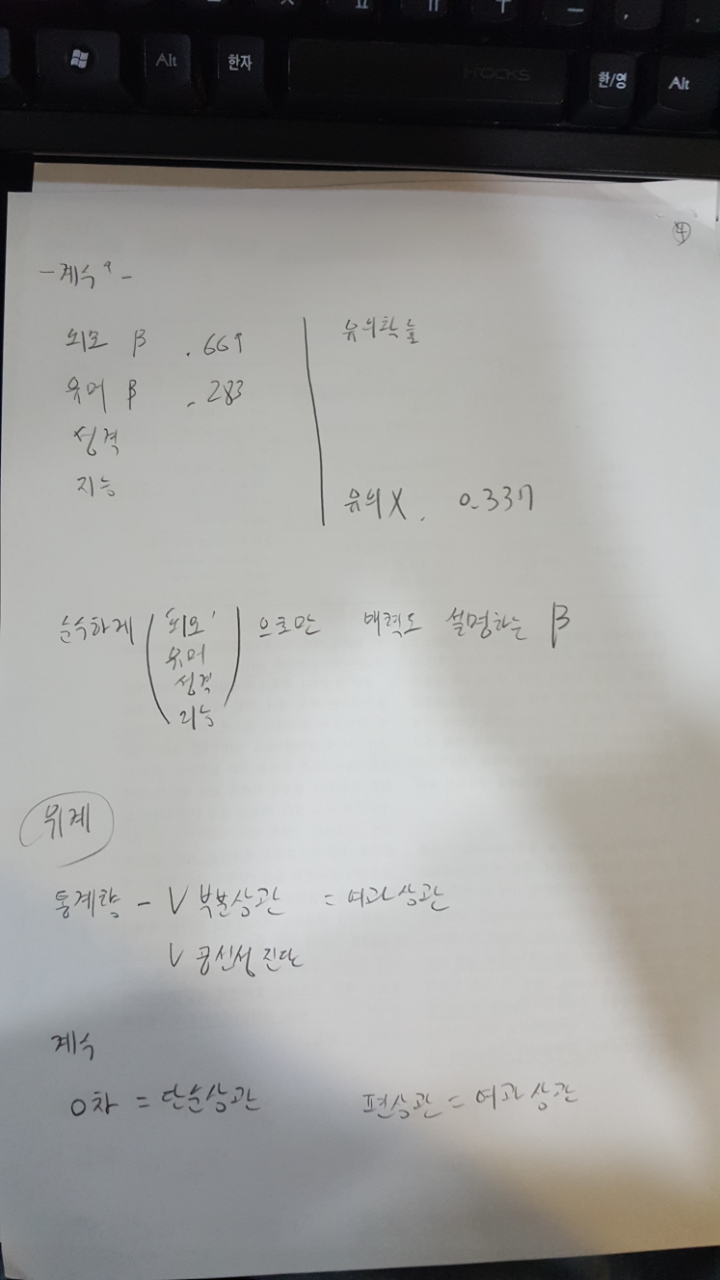 Alt
한자
i-rocks
한/영
Alt
④
- 계수 a -
외모 β .669
유머 β .283
성격
지능
유의확률
유의 X. 0.337
순수하게 ( '외모' 유머 성격 지능 ) 으로만 매력도 설명하는 β
위계
통계량 - V 부분상관 = 여과상관
V 공선성 진단
계수
0차 = 단순상관 편상관 = 여과상관